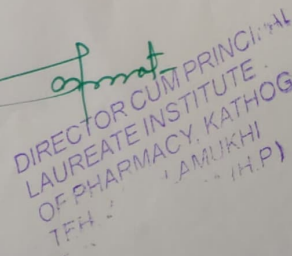 DIRECTOR CUM PRINCIPAL
LAUREATE INSTITUTE
OF PHARMACY, KATHOG
TEH. AMUKHI
(H.P)